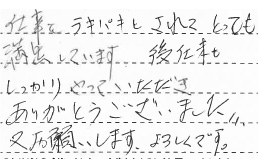 仕事を テキパキと されて とっても
満足しています 後仕事も
しっかり やって いただき
ありがとうございました
又お願いします よろしくです。